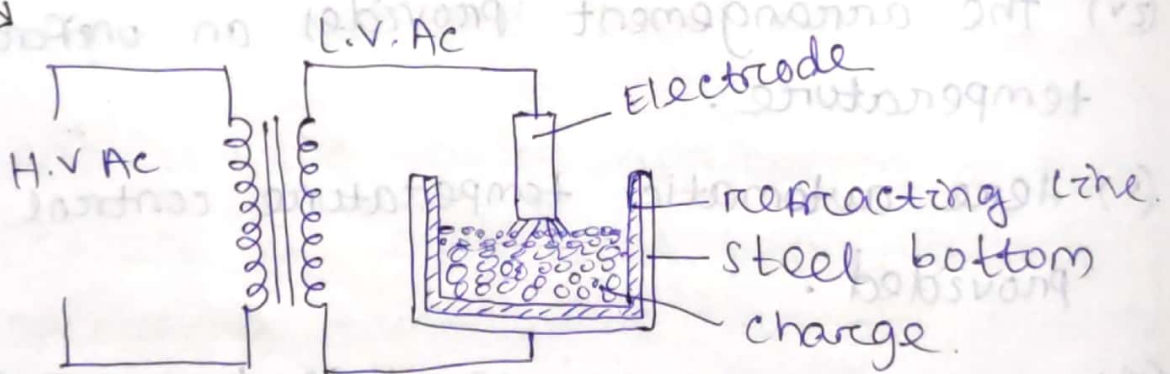 L.V. AC
Electrode
H.V AC
refracting line.
steel bottom
charge.